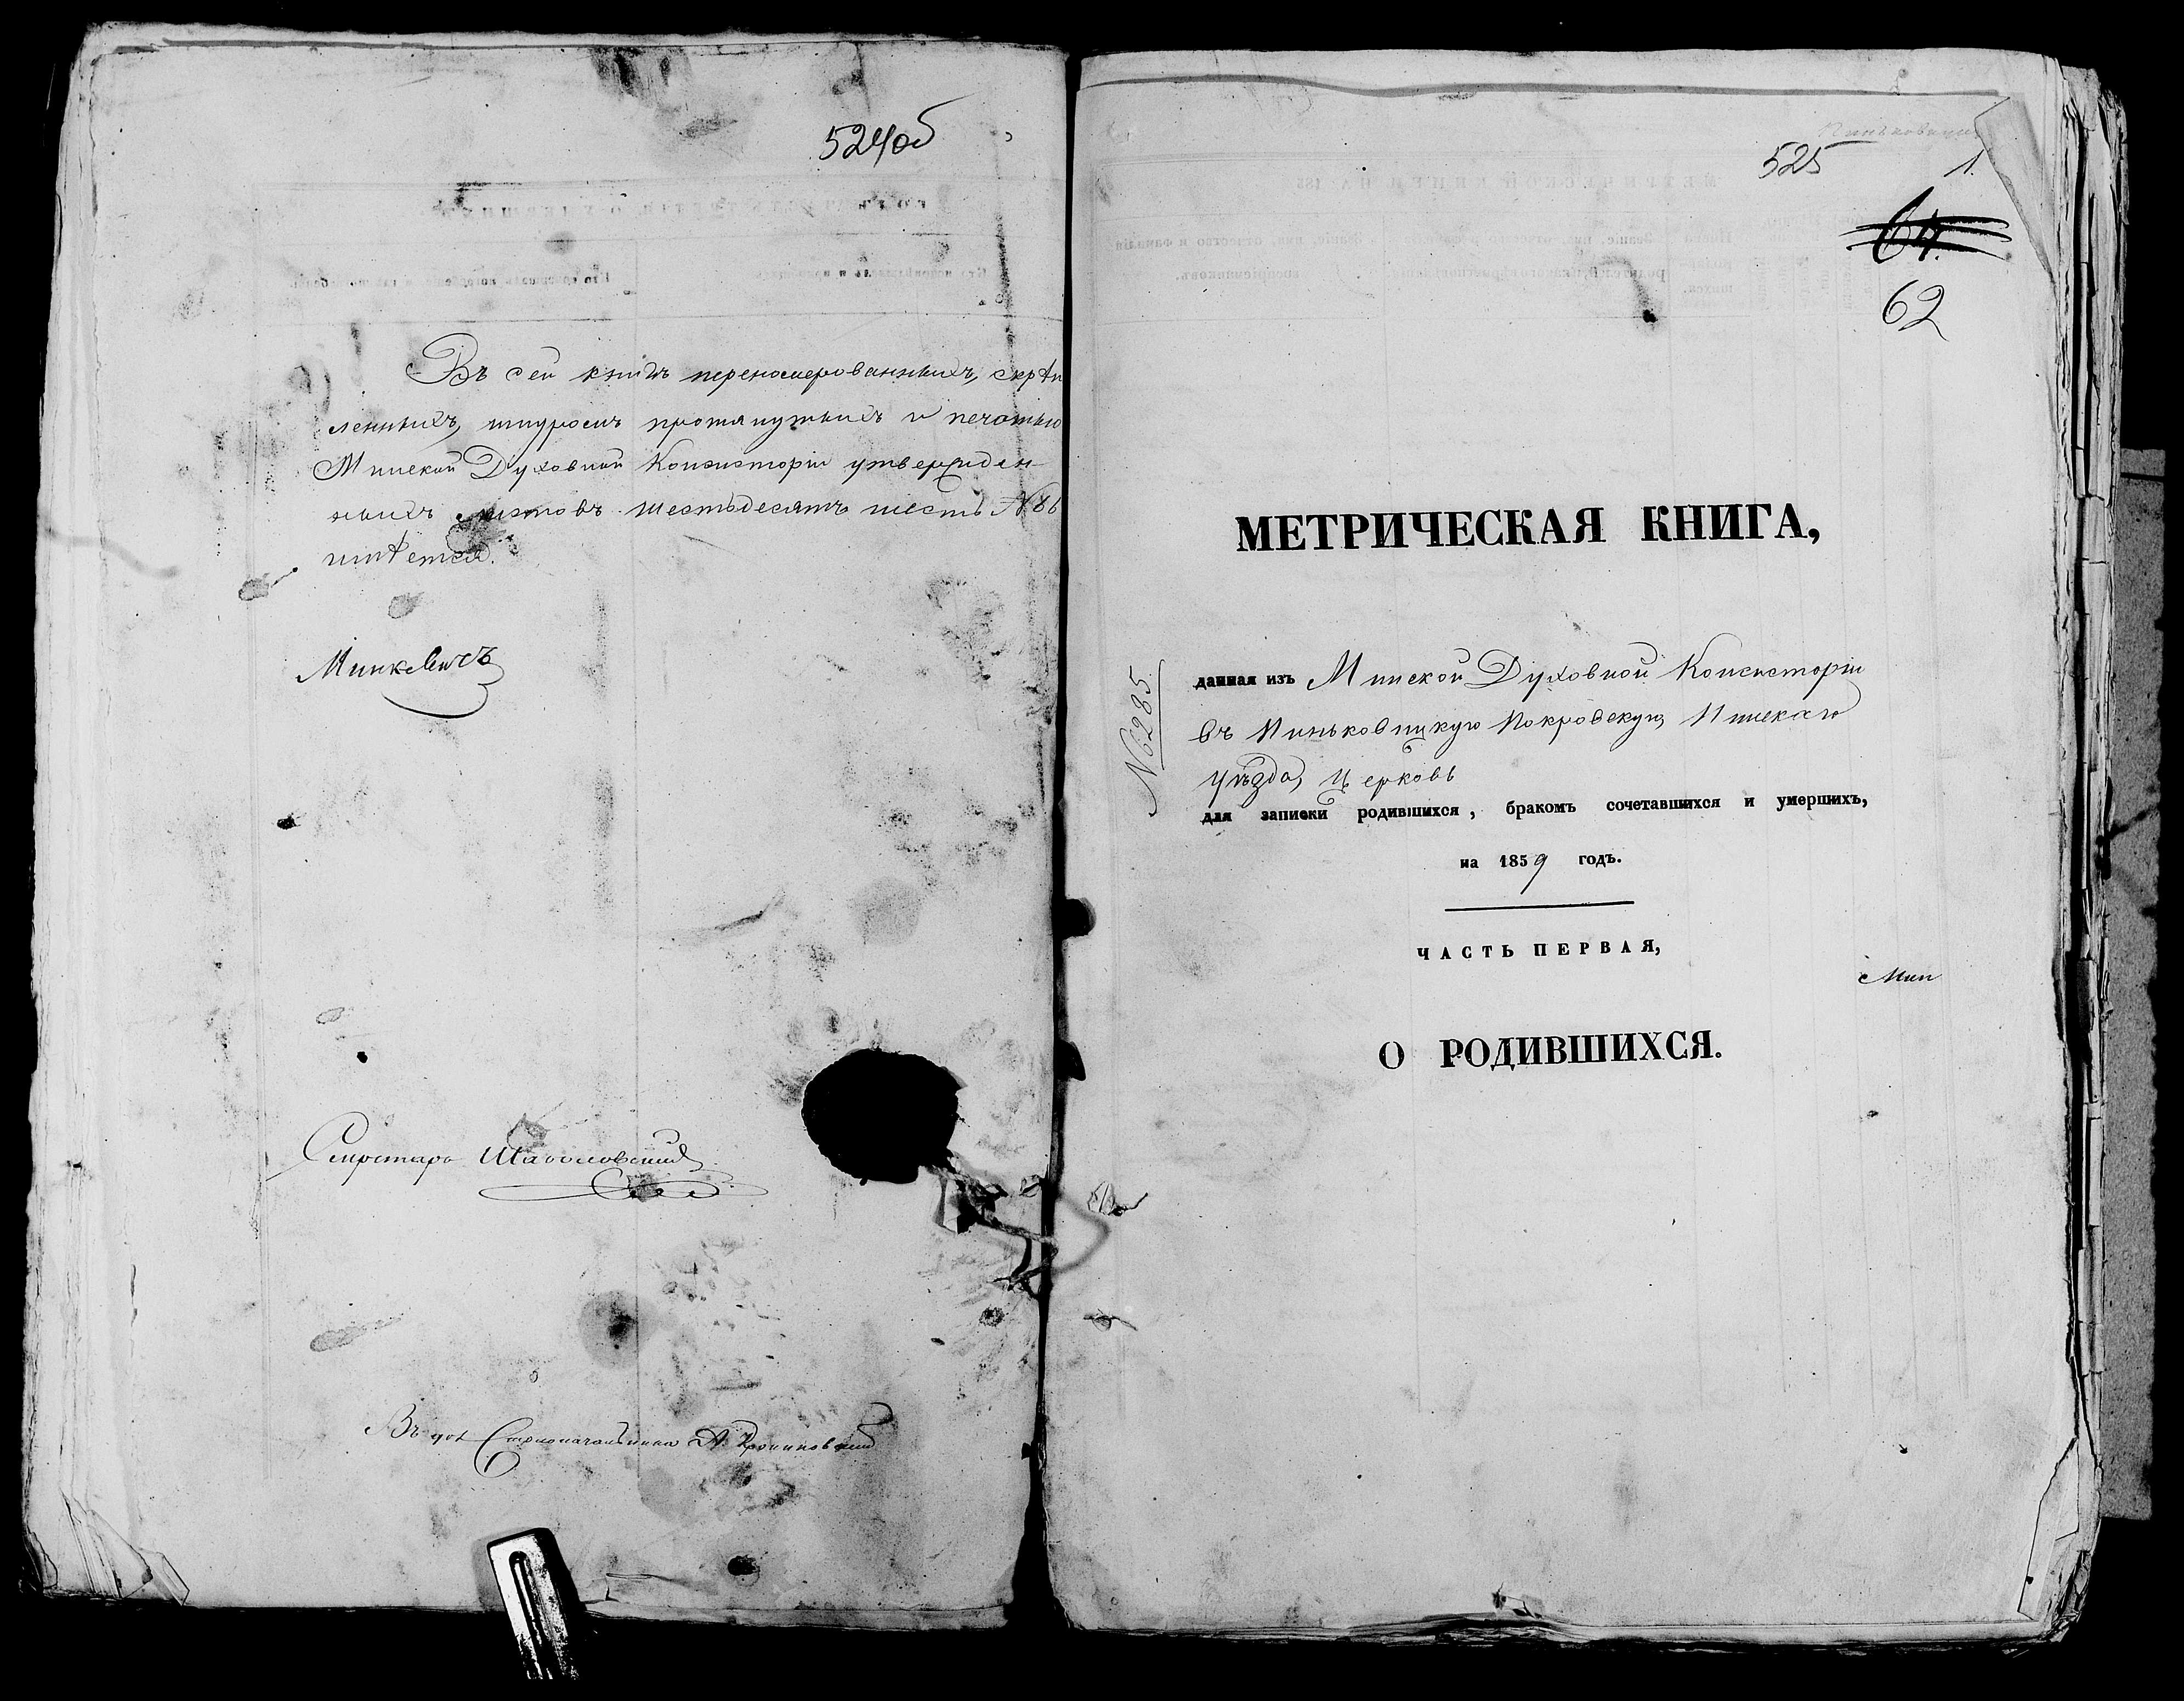 524об
Въ сей книгѣ переномерованныхъ, скрѣп
ленныхъ, шнуромъ протянутыхъ и печатью
Минской Духовной Консисторіи утвержден-
ныхъ листовъ шестьдесятъ шесть № 66
имѣется.
Минкевичъ
Секретарь
Въ дол. Столоначальника А.
525
1.
64.
62
МЕТРИЧЕСКАЯ КНИГА,
№ 6285.
данная изъ Минской Духовной Консисторіи
въ Пиньковицкую Покровскую, Пинскаго
уѣзда, церковь
для записки родившихся, бракомъ сочетавшихся и умершихъ,
на 1859 годъ.
ЧАСТЬ ПЕРВАЯ,
Мин
О РОДИВШИХСЯ.